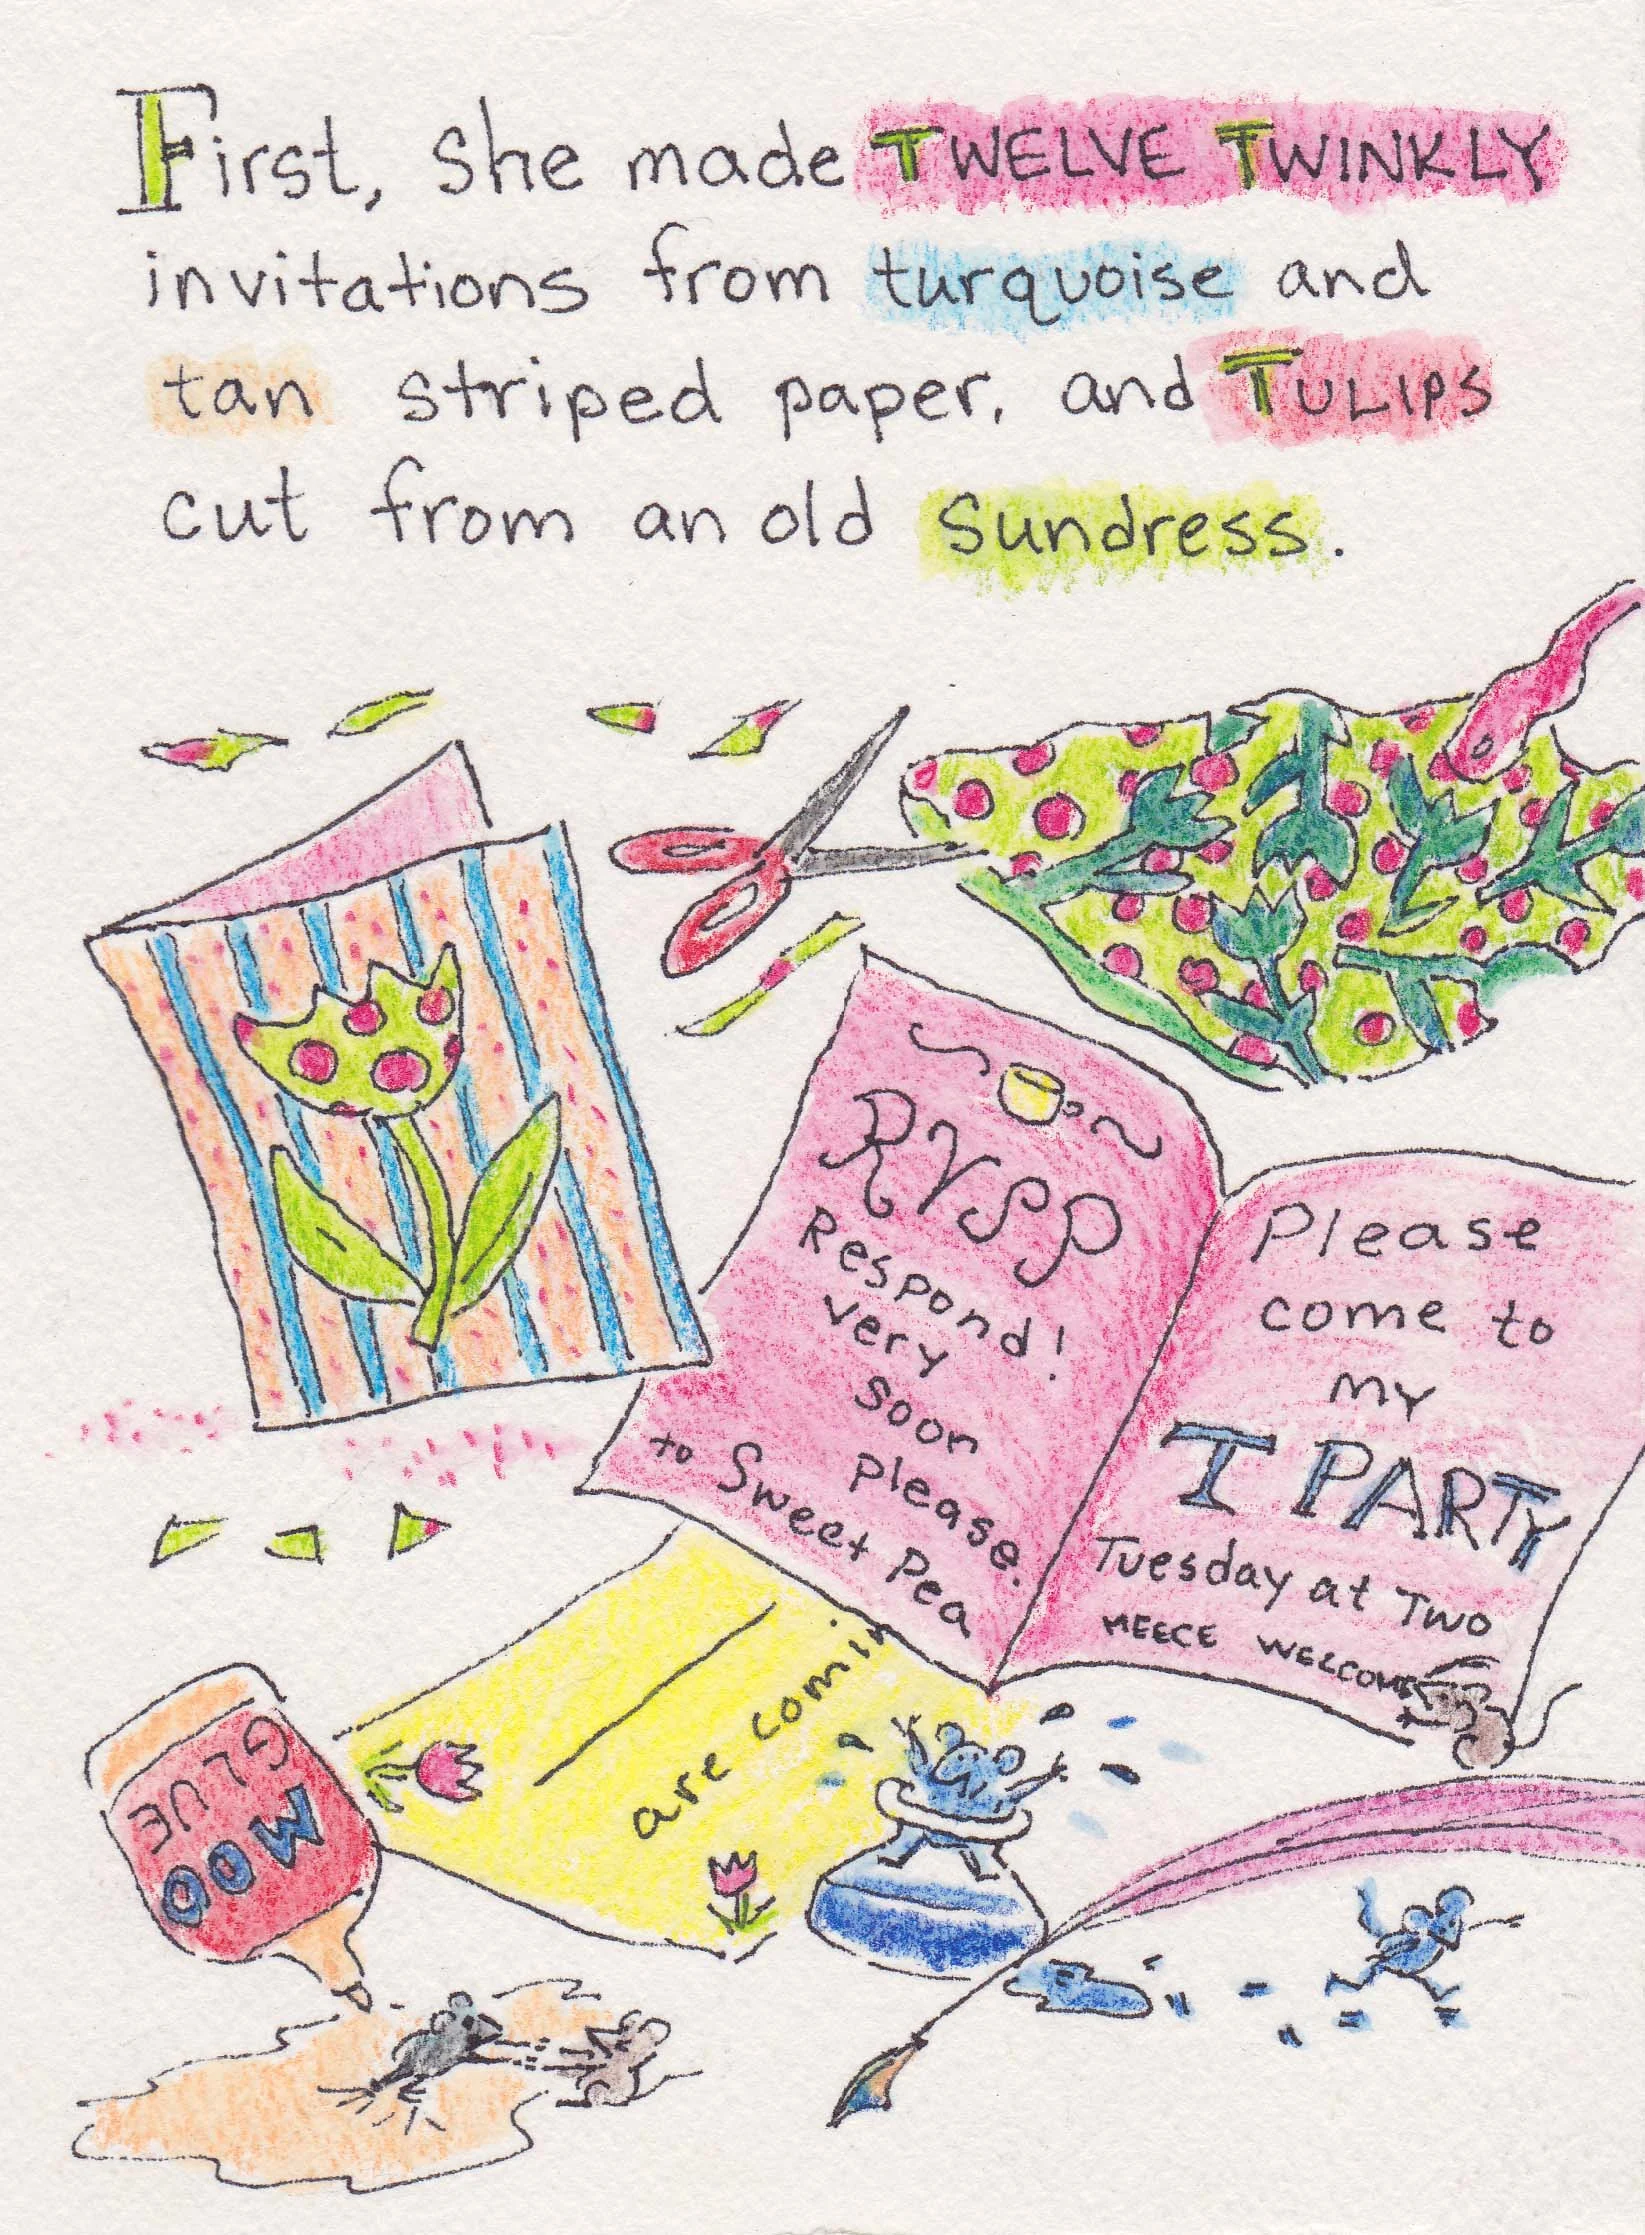 First, she made TWELVE TWINKLY
invitations from turquoise and
tan striped paper, and TULIPS
cut from an old Sundress.
RVSP
Respond!
very
soon
please.
to Sweet Pea
Please
come to
my
T PARTY
Tuesday at Two
MEECE WELCOME
are comin
MOO
GLUE